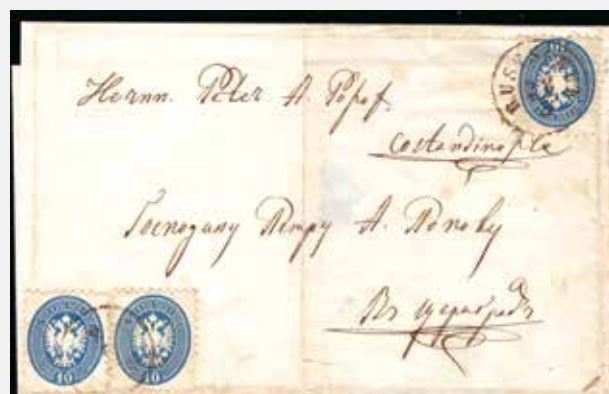 Hernn. Peter A. Popof.
Costandinople
Господину Петру А. Попову
Въ Цариградъ
RUS
10
10